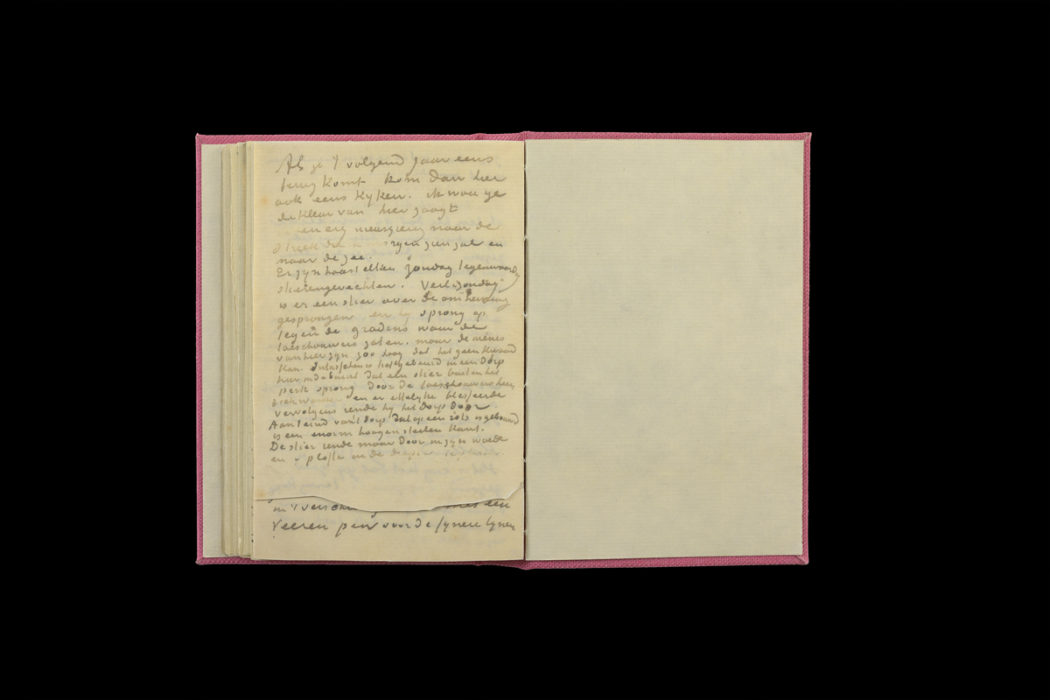 Als je 't volgend jaar eens
terug komt kom dan hier
ook eens kyken. ik wou je
de kleur van hier zaagt
en erg nieuwsgierig naar de
streek
naar de zee.
Er zyn haast elken zondag tegenwoordig
stierengevechten. Verl. zondag
is er een stier over de omheining
gesprongen en hy sprong op
tegen de gradens waar de
toeschouwers zaten. maar de arènes
van hier zyn zoo hoog dat het geen kwaad
kan Intusschen is het gebeurd in een dorp
hier in de buurt dat een stier buiten het
perk sprong door de toeschouwers heen
en er ettelyke blesseerde
vervolgens rende hy het dorp door
Aan 't eind van 't dorp dat op een rots is gebouwd
is een enorm hoogen steilen kant.
De stier rende maar door in zyn woede
en plofte in de diepte
in 't met een
veeren pen voor de fynere lynen